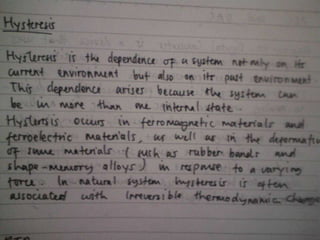 Hysteresis
Hysteresis is the dependence of a system not only on its
current environment but also on its past environment
This dependence arises because the system can
be in more than one internal state.
Hysteresis occurs in ferromagnetic materials and
ferroelectric materials, as well as in the deformation
of some materials (such as rubber bands and
shape-memory alloys) in response to a varying
force. In natural system, hysteresis is often
associated with irreversible thermodynamic change